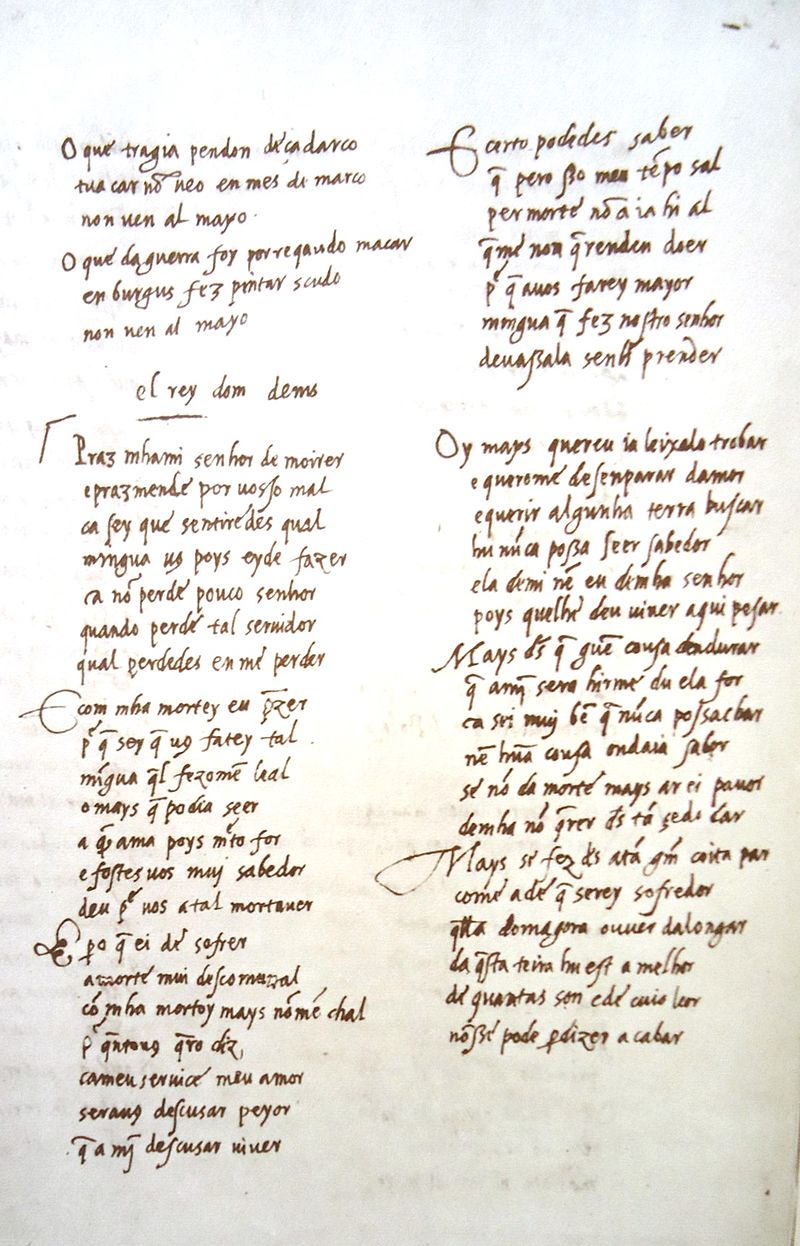 O que tragia pendon de çadarco
tua car nõ ueo en mes de março
non uen al mayo
O que da guerra foy por recaudo macar
en burgus fez pintar scudo
non uen al mayo
el rey dom denis
Praz mhami senhor de moirer
e praz mende por uosso mal
ca sey que sentiredes qual
mingua uꝯ poys ey de fazer
ca nõ perde pouco senhor
quando perde tal seruidor
qual perdedes en me perder
E com mha mortey eu p̃zer
p̃ q̃ sey q̃ uꝯ farey tal
mĩgua q̃l fezomẽ leal
o mays q̃ podia seer
a q̃ ama poys mr̃to for
e fostes uos muj sabedor
deu p̃ uos a tal mort auer
E pero q̃ ei de sofrer
a morte mui descomunal
cõ mha mortoy mays nõ me chal
p̃ q̃ntouꝯ q̃ro diz
ca meu seruiçe meu amor
serauꝯ descusar peyor
q̃ a mj̃ descusar uiuer
E certo podedes saber
q̃ pero sso meu tẽpo sal
per morte nõ a ia hi al
q̃ me non q̃renden doer
p̃ q̃ auos farey mayor
mingua q̃ fez nostro senhor
de uassala senh prender
Oy mays quereu ia leixalo trobar
e querome desenparar damor
e querir algunha terra buscar
hu nũca possa seer sabedor
ela demi nẽ eu demha senhor
poys quelhe deu uiuer aqui pesar
Mays ds̃ q̃ guẽ cousa dendurar
q̃ amj̃ sera hirme du ela for
ca sei muj bẽ q̃ nũca possachar
nẽ hũa cousa ondaia sabor
se nõ da morte mays ar ei pauor
demha nõ q̃rer ds̃ tã çedo dar
Mays se fez ds̃ atã gm̃ coita par
come a de q̃ serey sofredor
q̃ta domagora ouuer dalongar
da q̃sta terra hu est a melhor
de quantas son e de cuio loor
nõ sse pode perdizer acabar